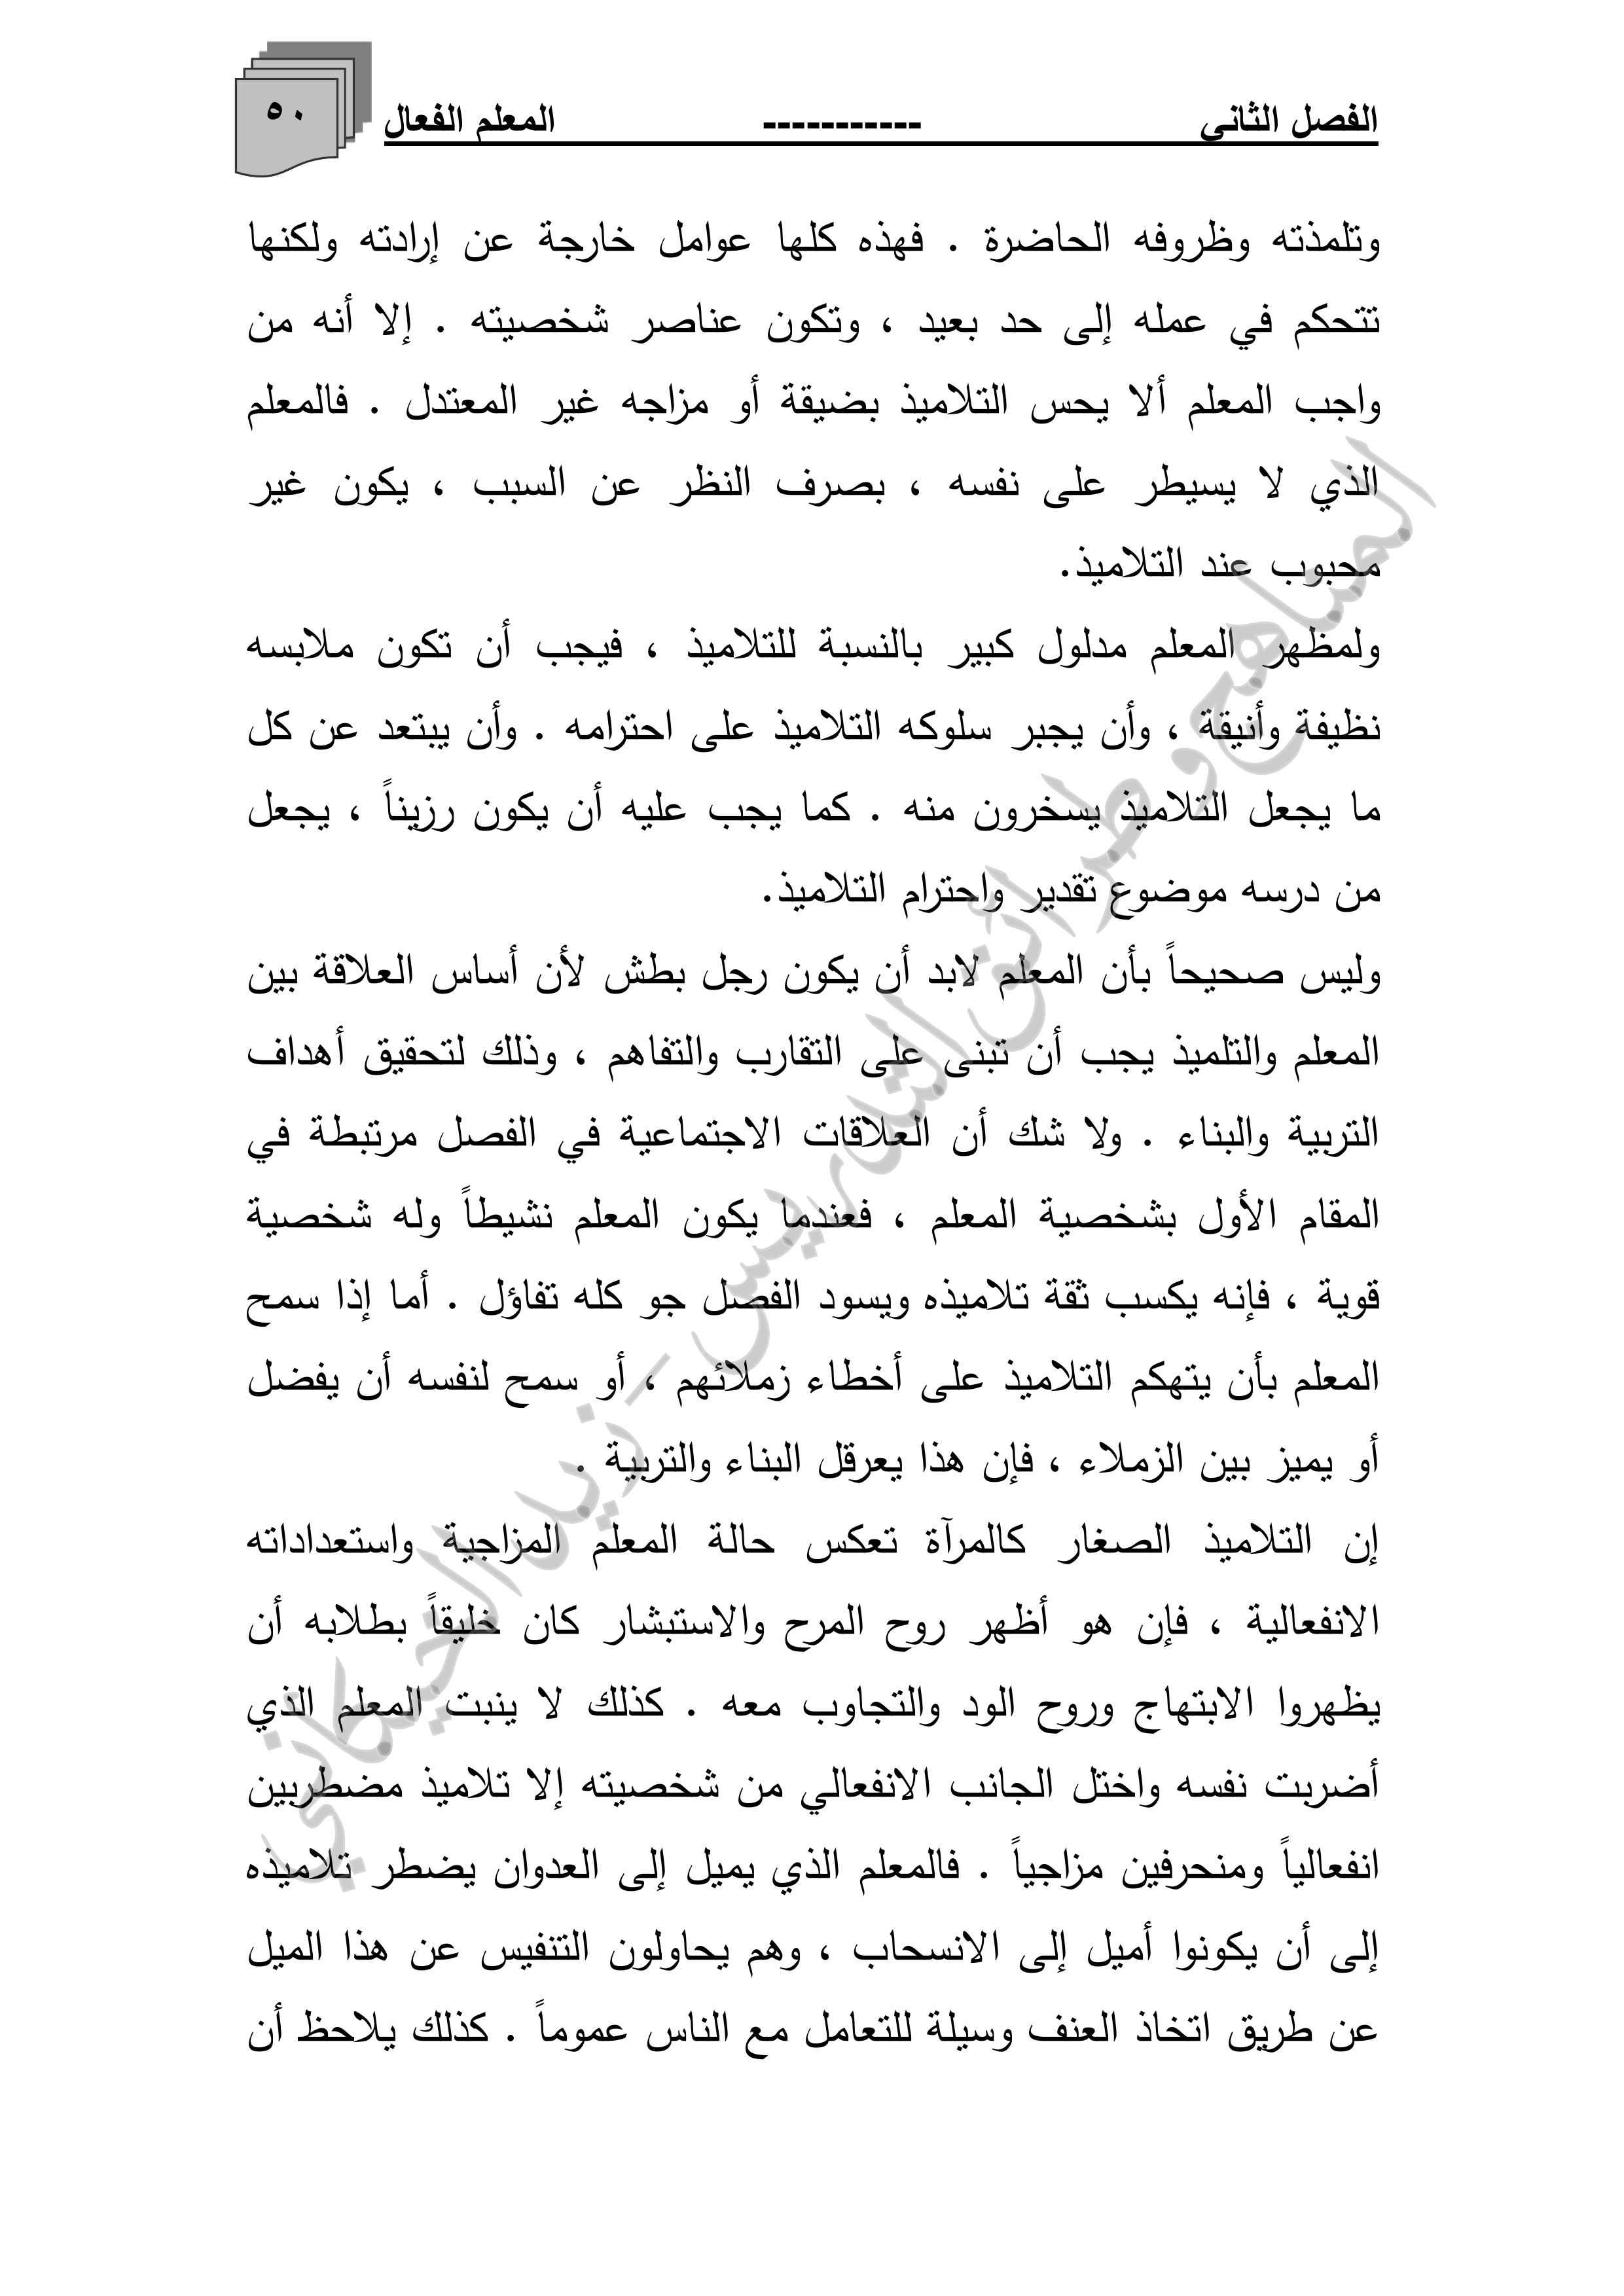 الفصل الثاني ----------- المعلم الفعال ٥٠
وتلمذته وظروفه الحاضرة . فهذه كلها عوامل خارجة عن إرادته ولكنها
تتحكم في عمله إلى حد بعيد ، وتكون عناصر شخصيته . إلا أنه من
واجب المعلم ألا يحس التلاميذ بضيقة أو مزاجه غير المعتدل . فالمعلم
الذي لا يسيطر على نفسه ، بصرف النظر عن السبب ، يكون غير
محبوب عند التلاميذ.
ولمظهر المعلم مدلول كبير بالنسبة للتلاميذ ، فيجب أن تكون ملابسه
نظيفة وأنيقة ، وأن يجبر سلوكه التلاميذ على احترامه . وأن يبتعد عن كل
ما يجعل التلاميذ يسخرون منه . كما يجب عليه أن يكون رزيناً ، يجعل
من درسه موضوع تقدير واحترام التلاميذ.
وليس صحيحاً بأن المعلم لابد أن يكون رجل بطش لأن أساس العلاقة بين
المعلم والتلميذ يجب أن تبنى على التقارب والتفاهم ، وذلك لتحقيق أهداف
التربية والبناء . ولا شك أن العلاقات الاجتماعية في الفصل مرتبطة في
المقام الأول بشخصية المعلم ، فعندما يكون المعلم نشيطاً وله شخصية
قوية ، فإنه يكسب ثقة تلاميذه ويسود الفصل جو كله تفاؤل . أما إذا سمح
المعلم بأن يتهكم التلاميذ على أخطاء زملائهم ، أو سمح لنفسه أن يفضل
أو يميز بين الزملاء ، فإن هذا يعرقل البناء والتربية .
إن التلاميذ الصغار كالمرآة تعكس حالة المعلم المزاجية واستعداداته
الانفعالية ، فإن هو أظهر روح المرح والاستبشار كان خليقاً بطلابه أن
يظهروا الابتهاج وروح الود والتجاوب معه . كذلك لا ينبت المعلم الذي
أضربت نفسه واختل الجانب الانفعالي من شخصيته إلا تلاميذ مضطربين
انفعالياً ومنحرفين مزاجياً . فالمعلم الذي يميل إلى العدوان يضطر تلاميذه
إلى أن يكونوا أميل إلى الانسحاب ، وهم يحاولون التنفيس عن هذا الميل
عن طريق اتخاذ العنف وسيلة للتعامل مع الناس عموماً . كذلك يلاحظ أن
المناهج وطرائق التدريس - زيد الخيكاني